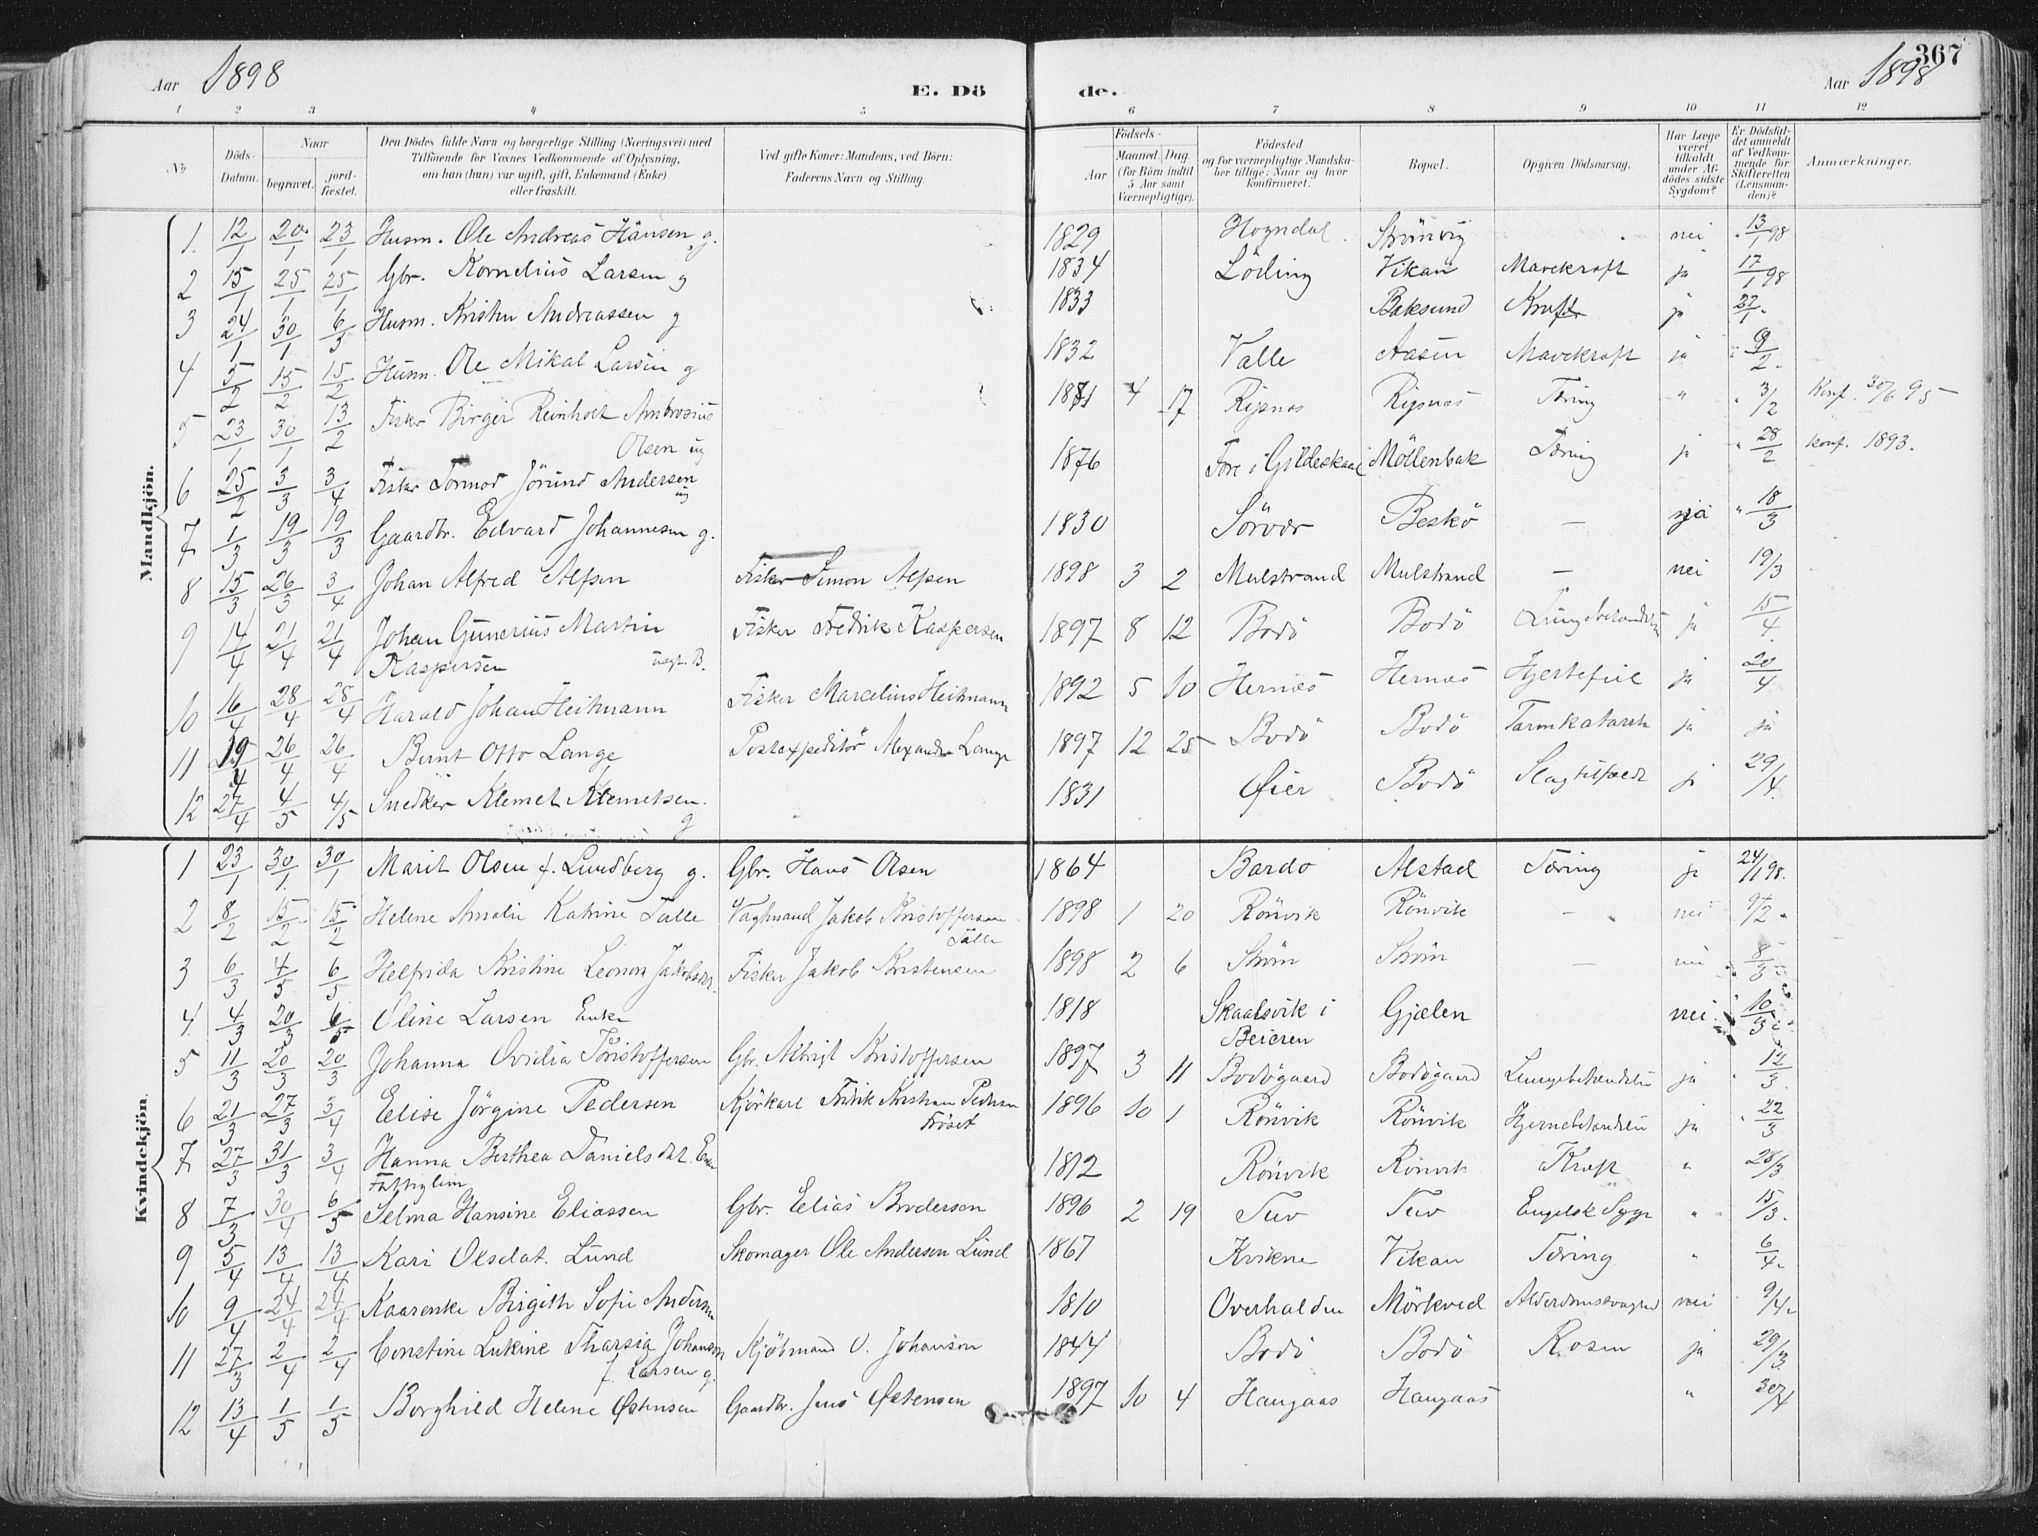 Aar 1898
E. Dö
de.
Aar 1898
367
1 2 3 4 5 6 7 8 9 10 11 12
No
Döds-Datum.
Naar
begravet.
jord-fæstet.
Den Dödes fulde Navn og borgerlige Stilling (Næringsvei) med
Tilföiende for Voxnes Vedkommende af Oplysning,
om han (hun) var ugift, gift, Enkemand (Enke)
eller fraskilt.
Ved gifte Koner: Mandens, ved Börn:
Faderens Navn og Stilling.
Födsels-
Aar
Maaned. Dag
(for Börn indtil
5 Aar samt
Værnepligtige).
Födested
og for værnepligtige Mandska-
ber tillige: Naar og hvor
konfirmeret.
Bopæl.
Opgiven Dödsaarsag.
Har Læge
været
tilkaldt
under Af-
dödes sidste
Sygdom?
Er Dödsfal-
det anmeldt
af Vedkom-
mende for
Skifteretten
(Lensman-
den)?
Anmærkninger.
Mandkjön.
1. 12/1 20/1 23/1 Husm. Ole Andreas Hansen g. 1829 Hogndal. Strömvig nei 13/1 98
2 15/1 25/1 25/1 Gbr. Kornelius Larsen g 1834 Löding Vikan Mavekraft ja 17/1 98
3 24/1 30/1 6/3 Husm. Kristen Andreassen g 1833 Baksund Kræft ja 27/1
4 5/2 15/2 15/2 Husm. Ole Mikal Larsen g 1832 Valle Aasen Mavekraft ja 9/2
5 23/1 30/1 13/2 Fisker Birger Reinholt Ambrosius 1881 4 17 Ripnes Ripnes Tæring " 3/2 Konf. 30/6 95
Olsen ug
6 25/2 3/3 3/4 Fisker Tormod Jörund Andersen ug 1876 Fore i Gildeskaal Möllenbak Tæring ja 28/2 konf. 1893.
7 1/3 19/3 19/3 Gaardbr. Edvard Johannesen g. 1830 Sörvær Beskö — ja 18/3
8 15/3 26/3 3/4 Johan Alfred Alfsen Fisker Simon Alfsen 1898 3 2 Mulstrand Mulstrand — nei 19/3
9 14/4 21/4 21/4 Johan Gunerius Martin Fisker Fredrik Kaspersen 1897 8 12 Bodö Bodö Lungebetændelse ja 15/4
Kaspersen uægt. B.
10 16/4 28/4 28/4 Harald Johan Heitmann Fisker Marcelius Heitmann 1892 5 10 Hernæs Hernæs Hjertefeil ja 20/4
11 19/4 26/4 26/4 Bernt Otto Lange Postexpeditör Alexander Lange 1897 12 25 Bodö Bodö Tarmkatarrh ja ja
12 27/4 4/5 4/5 Snedker Klemet Klemetsen. g 1831 Øier Bodö Slagtilfælde ja 29/4.
Kvindekjön.
1 23/1 30/1. 30/1 Marit Olsen f. Lundberg g. Gbr. Hans Olsen 1864 Bardo Alstad Tæring ja 24/1 98.
2 8/2 15/2 15/2 Helene Amalie Katrine Talle Vagtmand Jakob Kristoffersen 1898 1 20 Rönvik Rönvik — nei 9/2
Tälle
3 6/3 4/5 6/5 Helfrida Kristine Leonora Jakobsen Fisker Jakob Kristensen 1898 2 6 Ström Ström — nei 8/3
4. 4/3 20/3 6/5 Oline Larsen Enke 1818 Skaalsvik i Gjælen nei 10/3
Beieren
5 11/3 20/3 20/3 Johanna Ovidia Kristoffersen Gbr. Albrigt Kristoffersen 1897 3 11 Bodögaard Bodögaard Lungebetændelse ja 12/3
6 21/3 27/3 3/4 Elise Jörgine Pedersen Kjörkarl Fredrik Kristian Pedersen 1896 10 1 Rönvik Rönvik Hjernebetændelse ja 22/3
Fröset
7 27/3 31/3 3/4 Hanna Berthea Danielsdat. Enke 1812 Rönvik Rönvik Kræft " 28/3
Fattiglem
8 7/3 30/4 6/5 Selma Hansine Eliassen Gbr. Elias Brodersen 1896 2 19 Tuv Tuv Engelsk Syge " 15/3.
9 5/4 13/4 13/4 Kari Olsdat. Lund Skomager Ole Andersen Lund 1867 Kvikne Vikan Tæring " 6/4.
10 9/4 24/4 24/4 Kaarenke Birgith Sofie Andersen 1810 Overhalden Mörkved Alderdomssvaghed nei 9/4.
11 27/3 2/4 2/4 Constine Lukine Tharsia Johanson Kjöbmand O. Johanson 1844 Bodö Bodö Rosen ja 29/3.
f. Larsen g.
12 13/4 1/5 1/5 Borghild Helene Østensen Gaardbr. Jens Østensen 1897 10 4 Haugaas Haugaas " 30/4